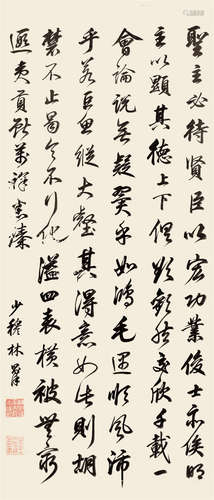 聖主必待賢臣以宏功業俊士亦俟明
主以顯其德上下俱欲歡然交欣千載一
會論說無疑翼乎如鴻毛遇順風沛
乎若巨魚縱大壑其得意如此則胡
禁不止曷令不行化溢四表橫被無窮
遐夷貢獻萬祥畢溱
少穆林則徐